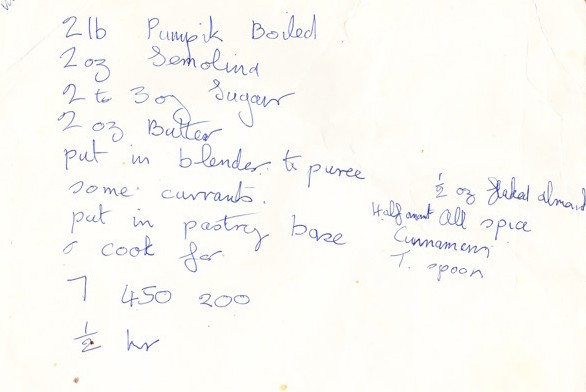 2 lb Pumpik Boiled
2 oz Semolina
2 to 3 oz Sugar
2 oz Butter
put in blender to puree
some currants.
put in pastry base
& cook for
7 450 200
½ hr
½ oz flaked almand
Half amt All spice
Cinnamem
T. spoon